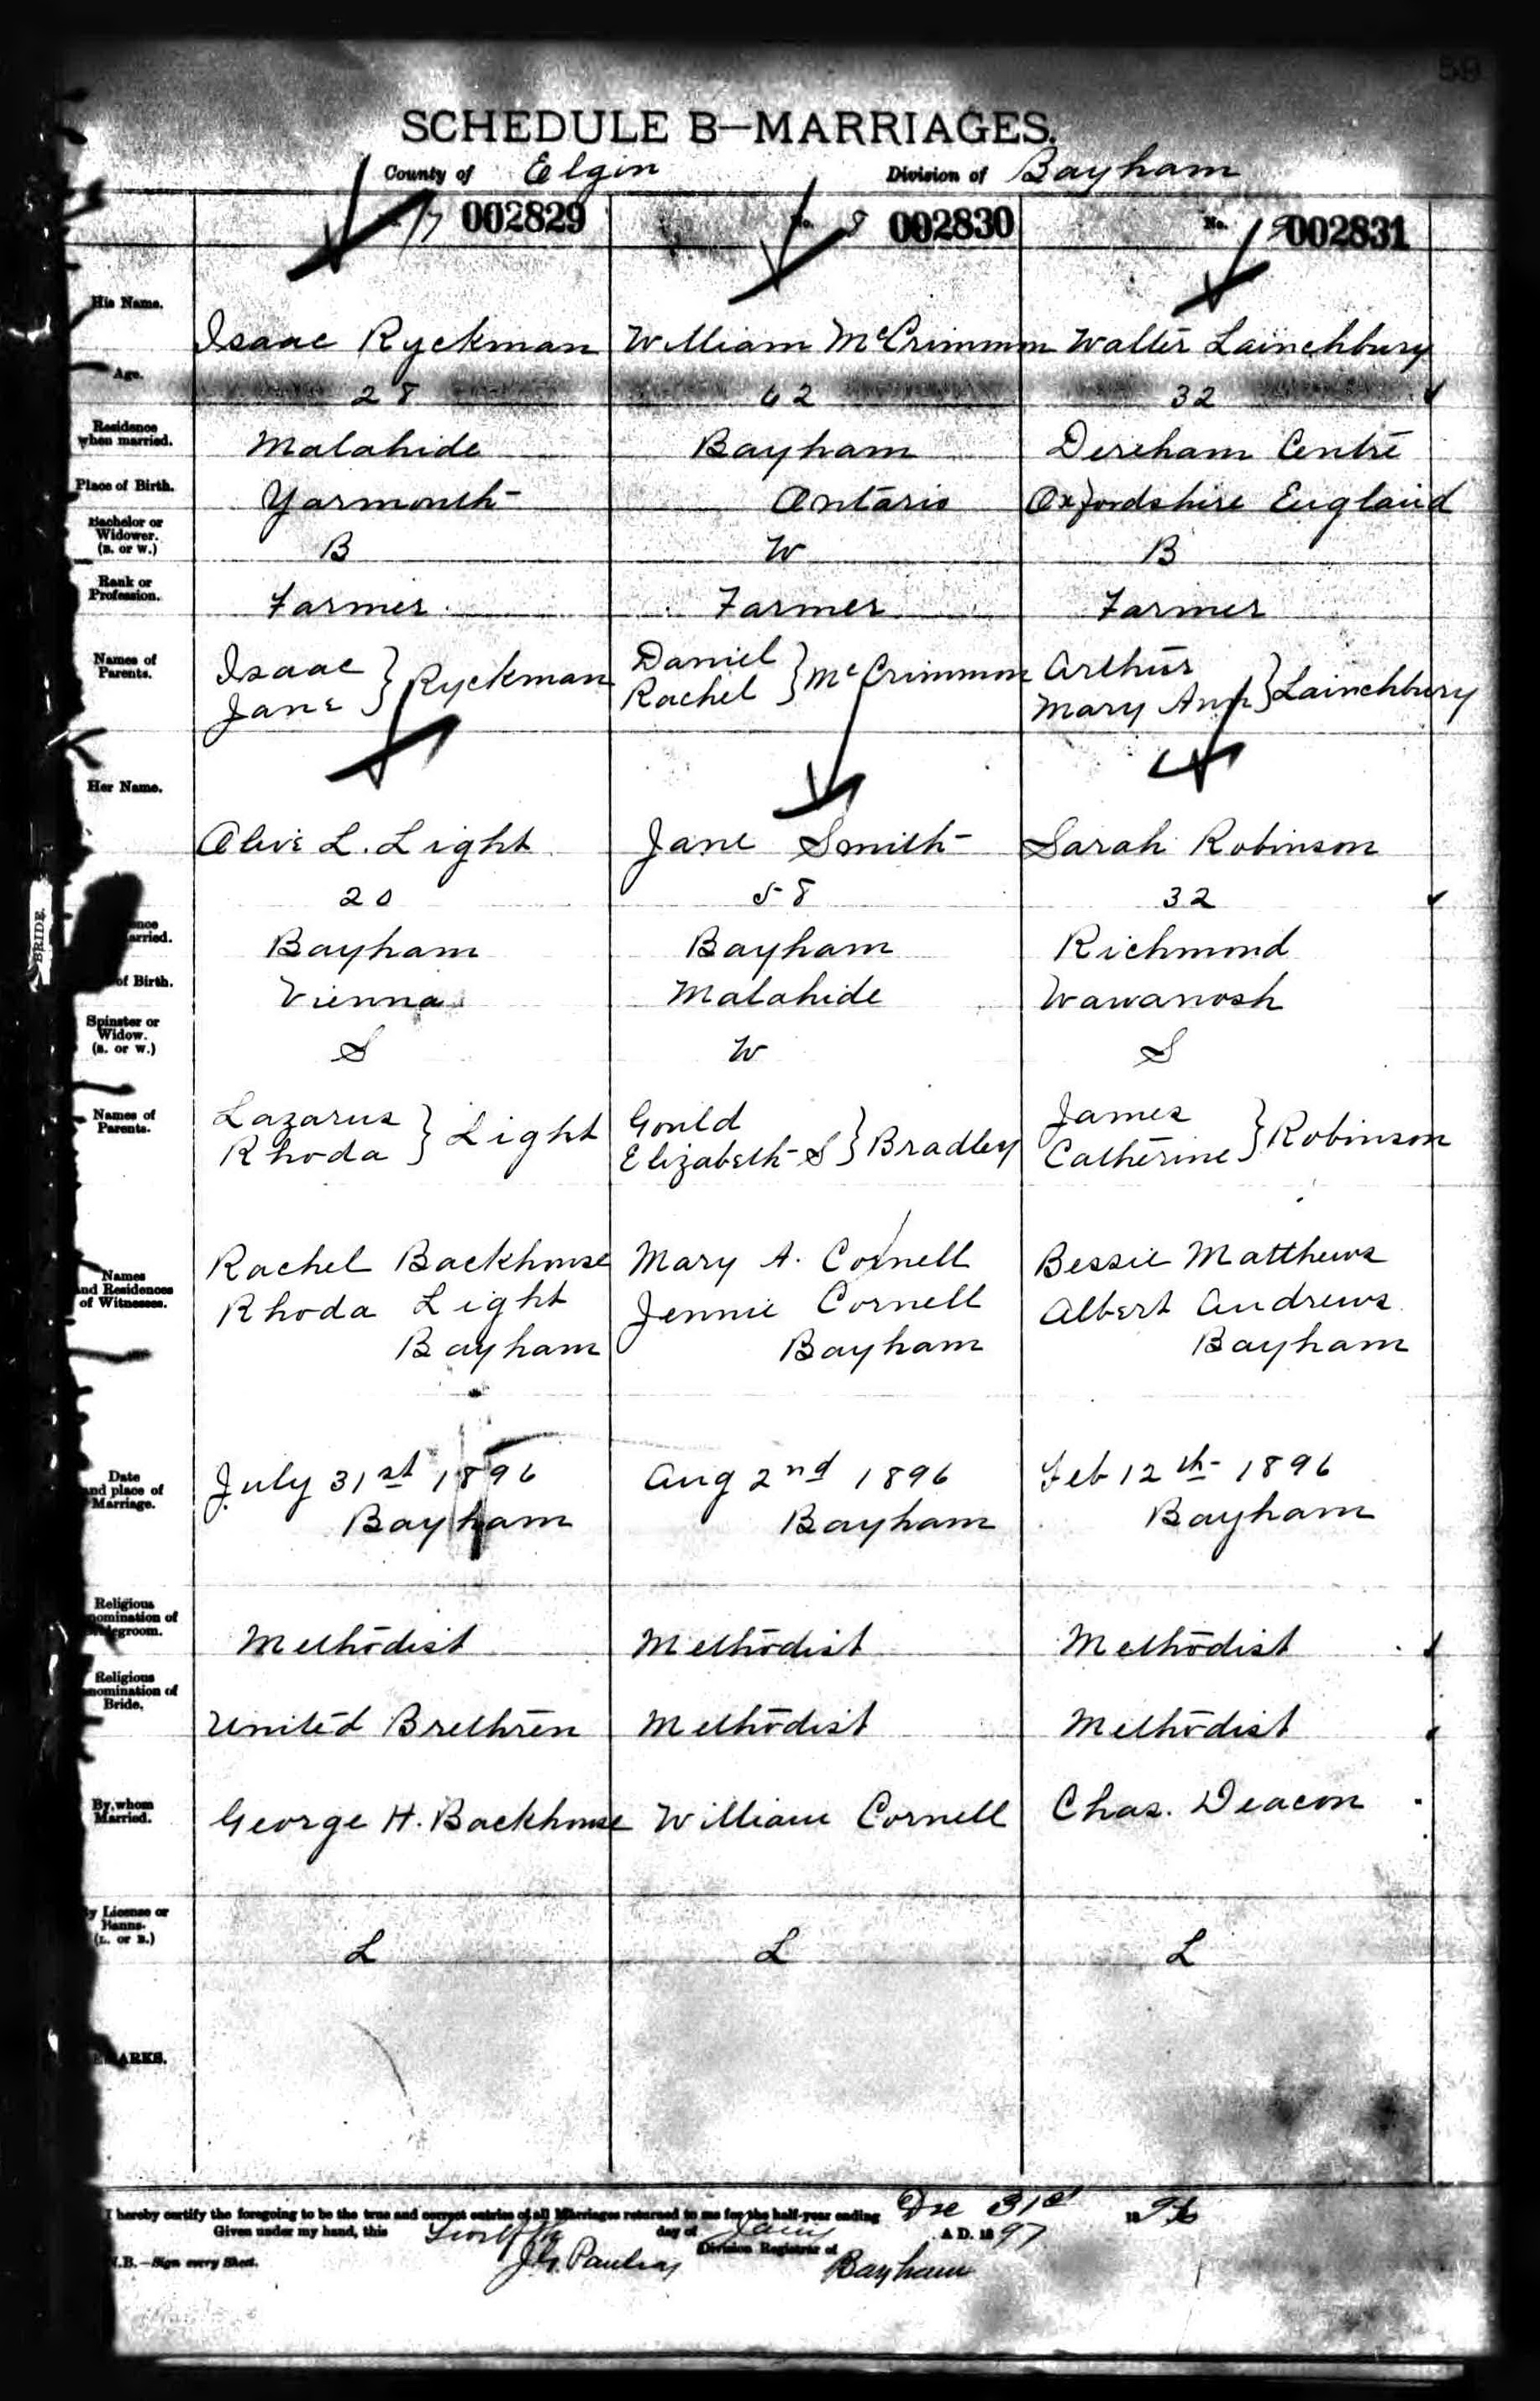 59
SCHEDULE B—MARRIAGES.
County of Elgin Division of Bayham
7 002829
No. 8 002830
No. 9 002831
His Name.
Isaac Ryckman
William McCrimmon
Walter Lainchbury
Age.
28
62
32
Residence when married.
Malahide
Bayham
Dereham Centre
Place of Birth.
Yarmouth
Ontario
Oxfordshire England
Bachelor or Widower. (B. or W.)
B
W
B
Rank or Profession.
Farmer
Farmer
Farmer
Names of Parents.
Isaac Jane } Ryckman
Daniel Rachel } McCrimmon
Arthur Mary Ann } Lainchbury
BRIDE.
Her Name.
Olive L. Light
Jane Smith
Sarah Robinson
20
58
32
Bayham
Bayham
Richmond
of Birth.
Vienna
Malahide
Wawanosh
Spinster or Widow. (S. or W.)
S
W
S
Names of Parents.
Lazarus Rhoda } Light
Gould Elizabeth S } Bradley
James Catherine } Robinson
Names and Residences of Witnesses.
Rachel Backhouse
Rhoda Light
Bayham
Mary A. Cornell
Jennie Cornell
Bayham
Bessie Matthews
Albert Andrews
Bayham
Date and place of Marriage.
July 31st 1896
Bayham
Aug 2nd 1896
Bayham
Feb 12th 1896
Bayham
Religious nomination of groom.
Methodist
Methodist
Methodist
Religious nomination of Bride.
United Brethren
Methodist
Methodist
By whom Married.
George H. Backhouse
William Cornell
Chas. Deacon
y License or Banns. (L. or B.)
L
L
L
ARKS.
I hereby certify the foregoing to be the true and correct entries of all Marriages returned to me for the half-year ending Dec 31st 1896
Given under my hand, this Twelfth day of Jany A D. 1897
Division Registrar of Bayham
N.B.—Sign every Sheet.